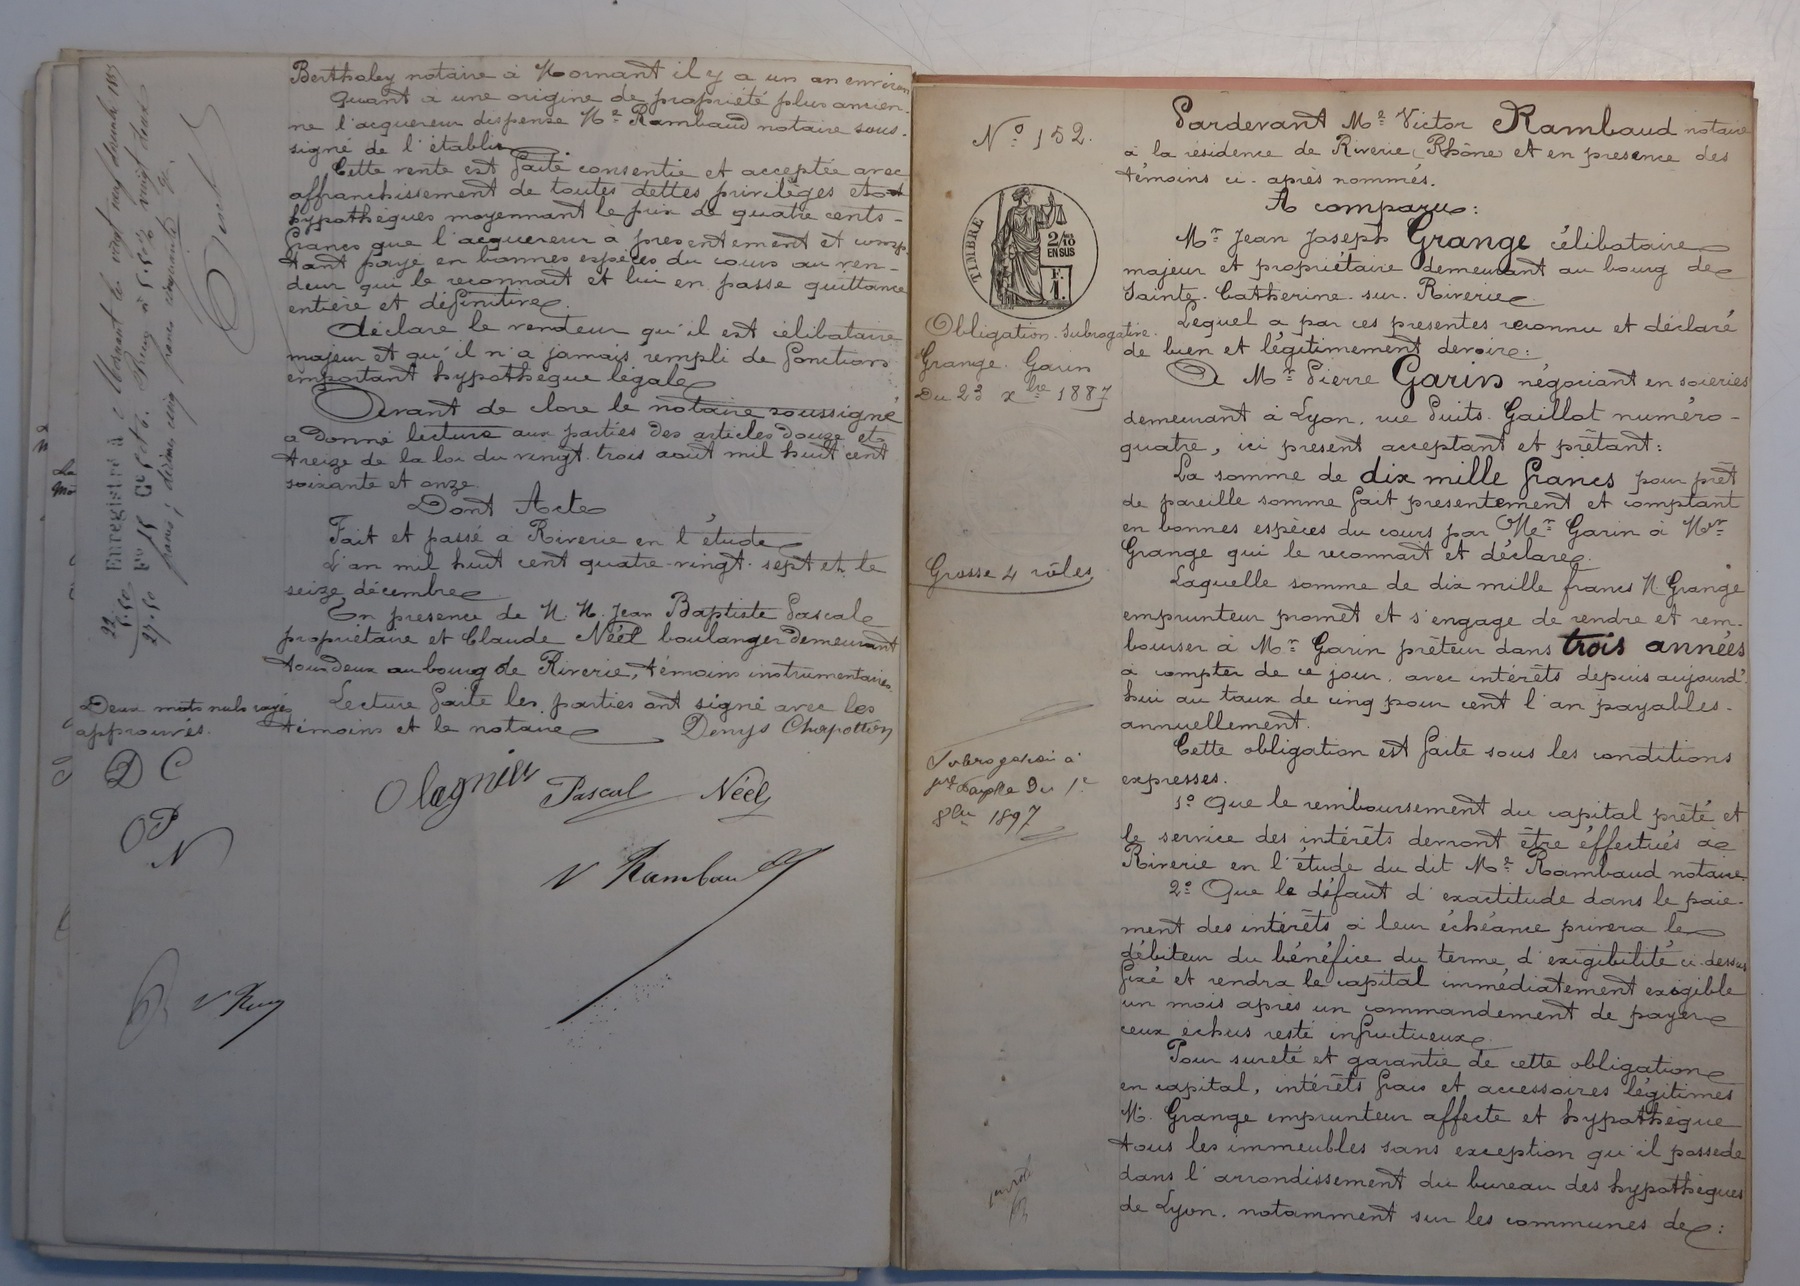 Berthaley notaire à Mornant il y a un an environ
Quant à une origine de propriété plus ancien-
ne l'acquereur dispense Me Rambaud notaire sous-
signé de l'établir
Cette vente est faite consentie et acceptée avec
affranchissement de toutes dettes privilèges et
hypothèques moyennant le prix de quatre cents-
francs que l'acquereur à presentement et comp-
tant payé en bonnes espèces du cours au ven-
deur qui le reconnait et lui en passe quittance
entière et définitive.
Déclare le vendeur qu'il est célibataire
majeur et qu'il n'a jamais rempli de fonctions
emportant hypothèque légale
Avant de clore le notaire soussigné
a donné lecture aux parties des articles douze et
treize de la loi du vingt-trois août mil huit cent
soixante et onze.
Dont Acte
Fait et passé à Riverie en l'étude
L'an mil huit cent quatre-vingt-sept et le
seize décembre
En presence de M.M. Jean Baptiste Pascal
propriétaire et Claude Néel boulanger demeurant
tous deux au bourg de Riverie, témoins instrumentaires.
Lecture faite les parties ont signé avec les
témoins et le notaire
Denys Chapottin
Olagnier Pascal Néel
V Rambaud
Enregistré à Mornant le vingt neuf décembre 188
francs; décimes cinq francs cinquante c.
22
5.50
27.50
Deux mots nuls rayés
approuvés.
D C
O P
N
V R
No 152.
TIMBRE
2/10
EN SUS
Obligation Subrogative.
Grange. Garin
Du 23 xbre 1887
Grosse 4 rôles
Subrogation à
du 1er
8bre 1897
Pardevant Me Victor Rambaud notaire
à la résidence de Riverie (Rhône) et en presence des
témoins ci-après nommés.
A comparu:
Mr Jean Joseph Grange célibataire
majeur et propriétaire demeurant au bourg de
Sainte-Catherine-sur-Riverie
Lequel a par ces presentes reconnu et déclaré
de bien et légitimement devoir:
A Mr Pierre Garin négociant en soieries
demeurant à Lyon, rue Puits-Gaillot numéro-
quatre, ici present acceptant et prêtant:
La somme de dix mille francs pour prêt
de pareille somme fait presentement et comptant
en bonnes espèces du cours par Mr Garin à Mr
Grange qui le reconnait et déclare
Laquelle somme de dix mille francs M. Grange
emprunteur promet et s'engage de rendre et rem-
bourser à Mr Garin prêteur dans trois années
à compter de ce jour, avec intérêts depuis aujourd'
hui au taux de cinq pour cent l'an payables-
annuellement.
Cette obligation est faite sous les conditions
expresses.
1o Que le remboursement du capital prêté et
le service des intérêts devront être éffectués à
Riverie en l'étude du dit Me Rambaud notaire
2o Que le défaut d'exactitude dans le paie-
ment des intérêts à leur échéance privera le
débiteur du bénéfice du terme d'exigibilité ci-dessus
fixé et rendra le capital immédiatement exigible
un mois après un commandement de payer
ceux échus resté infructueux.
Pour sureté et garantie de cette obligation
en capital, intérêts frais et accessoires légitimes
M. Grange emprunteur affecte et hypothèque
tous les immeubles sans exception qu'il possede
dans l'arrondissement du bureau des hypothèques
de Lyon, notamment sur les communes de: